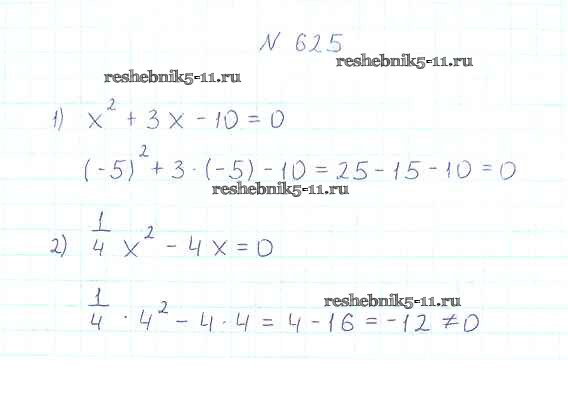 N 625
reshebnik5-11.ru
reshebnik5-11.ru
1) x² + 3x - 10 = 0
(-5)² + 3 · (-5) - 10 = 25 - 15 - 10 = 0
reshebnik5-11.ru
2) 1/4 x² - 4x = 0
reshebnik5-11.ru
1/4 · 4² - 4 · 4 = 4 - 16 = -12 ≠ 0